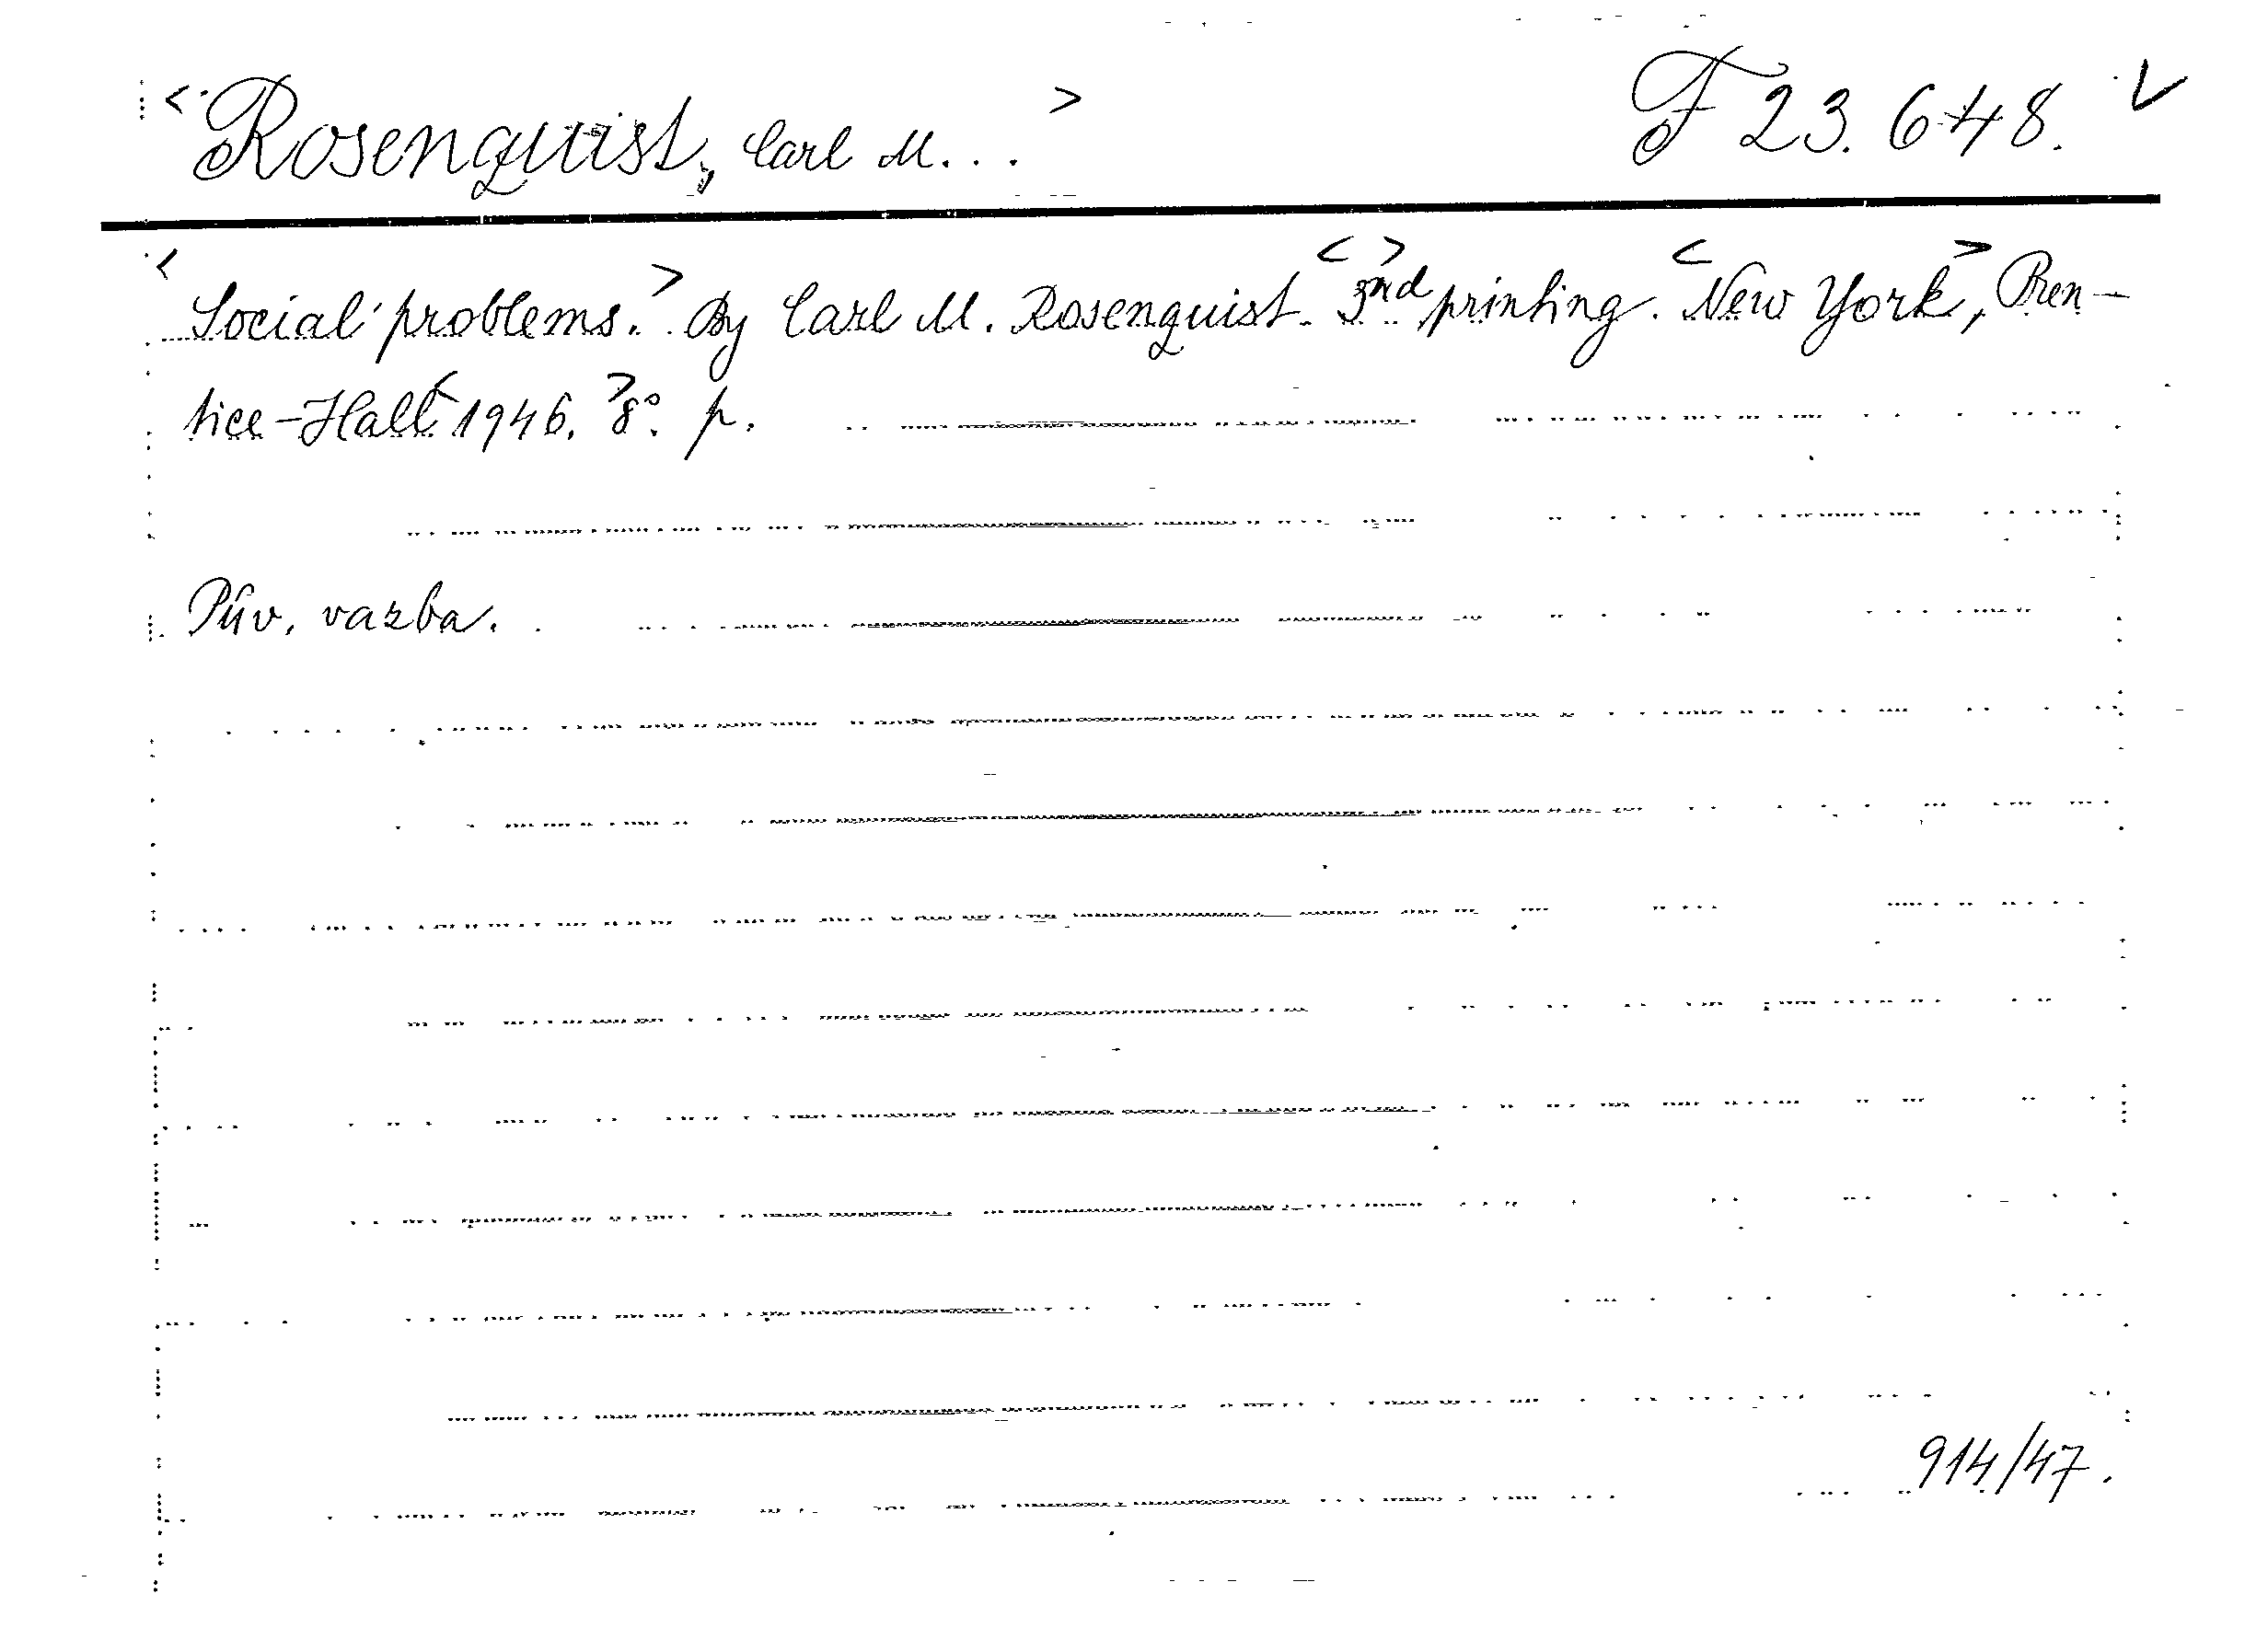 <Rosenquist, Carl M...> F 23.648. V
<Social problems.> By Carl M. Rosenquist. <3nd> printing. <New York>, Pren-
tice-Hall <1946.> 8°. p.
Pův. vazba.
914/47.